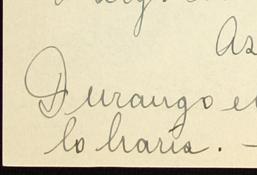 Az
Durango e
lo haría. –